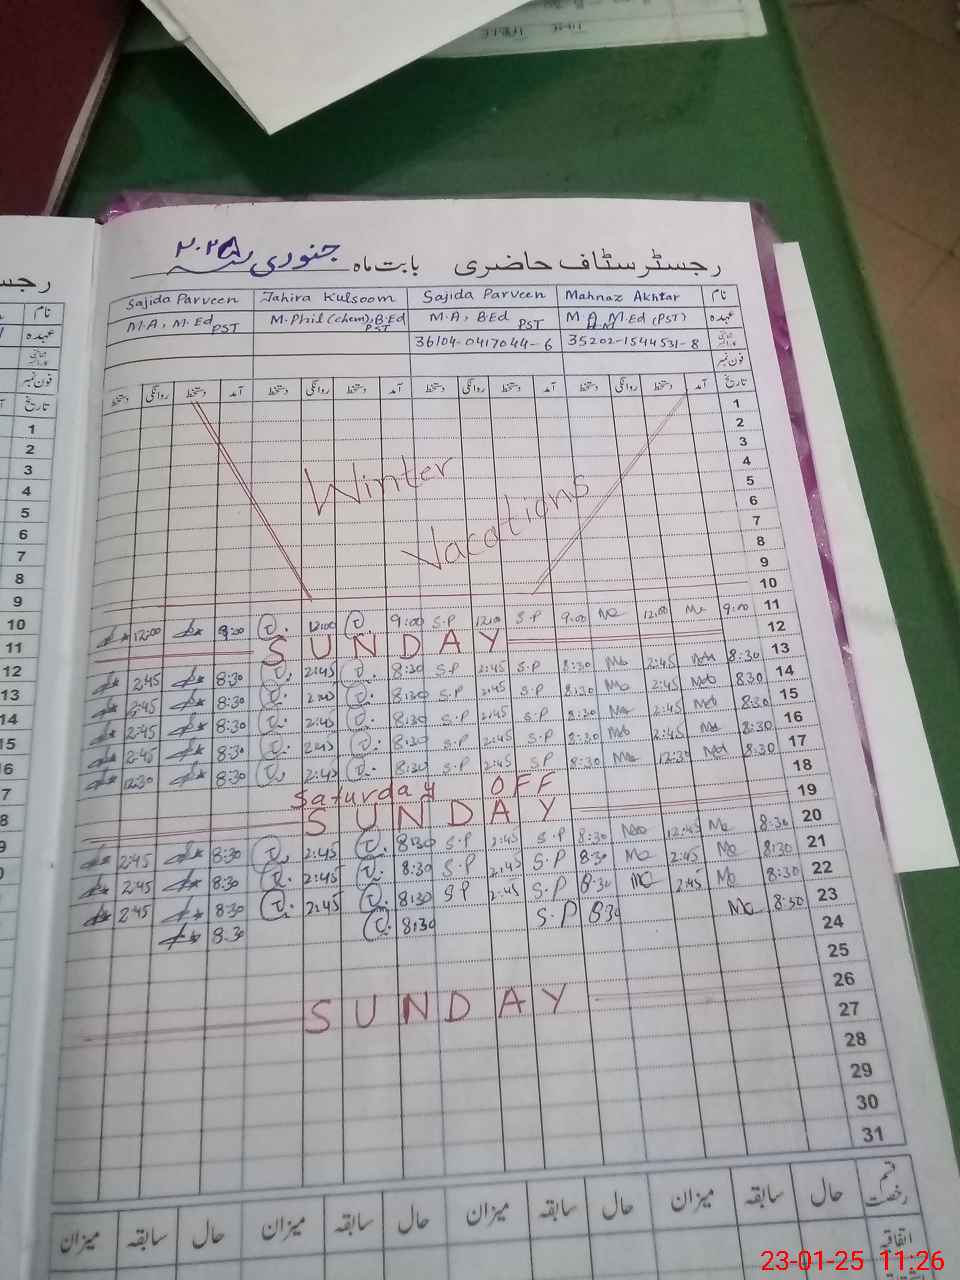 رجسٹر سٹاف حاضری بابت ماہ جنوری سنہ ۲۰۲۵
نام Mahnaz Akhtar Sajida Parveen Tahira Kulsoom Sajida Parveen
عہدہ M.A, M.Ed (PST) M.A, B.Ed PST M.Phil (Chem), B.Ed PST M.A, M.Ed PST
35202-1544531-8 36104-0417044-6
فون نمبر
تاریخ آمد دستخط روانگی دستخط آمد دستخط روانگی دستخط آمد دستخط روانگی دستخط آمد دستخط روانگی دستخط
1
2
3
4
5
6
7
8
9
10
Winter
Vacations
11 9:00 12:00 9:00 S.P 12:00 S.P 9:00 12:00 9:00 12:00
12 SUNDAY
13 8:30 2:45 8:30 S.P 2:45 S.P 8:30 2:45 8:30 2:45
14 8:30 2:45 8:30 S.P 2:45 S.P 8:30 8:30 2:45
15 8:30 2:45 8:30 S.P 2:45 S.P 8:30 2:45 8:30 2:45
16 8:30 2:45 8:30 S.P 2:45 S.P 8:30 2:45 8:30 2:45
17 8:30 12:30 8:30 SP 2:45 S.P 8:30 2:45 8:30 12:30
18 Saturday OFF
19 SUNDAY
20 8:30 12:45 8:30 S.P 2:45 S.P 8:30 2:45 8:30 2:45
21 8:30 2:45 8:30 S.P 2:45 S.P 8:30 2:45 8:30 2:45
22 8:30 2:45 8:30 S.P 2:45 SP 8:30 2:45 8:30 2:45
23 8:30 8:30 S.P 8:30 8:30
24
25
26 SUNDAY
27
28
29
30
31
قسم رخصت حال سابقہ میزان حال سابقہ میزان حال سابقہ میزان حال سابقہ میزان
اتفاقیہ
نام
عہدہ
فون نمبر
تاریخ
1
2
3
4
5
6
7
8
9
10
11
12
13
14
15
16
23-01-25 11:26